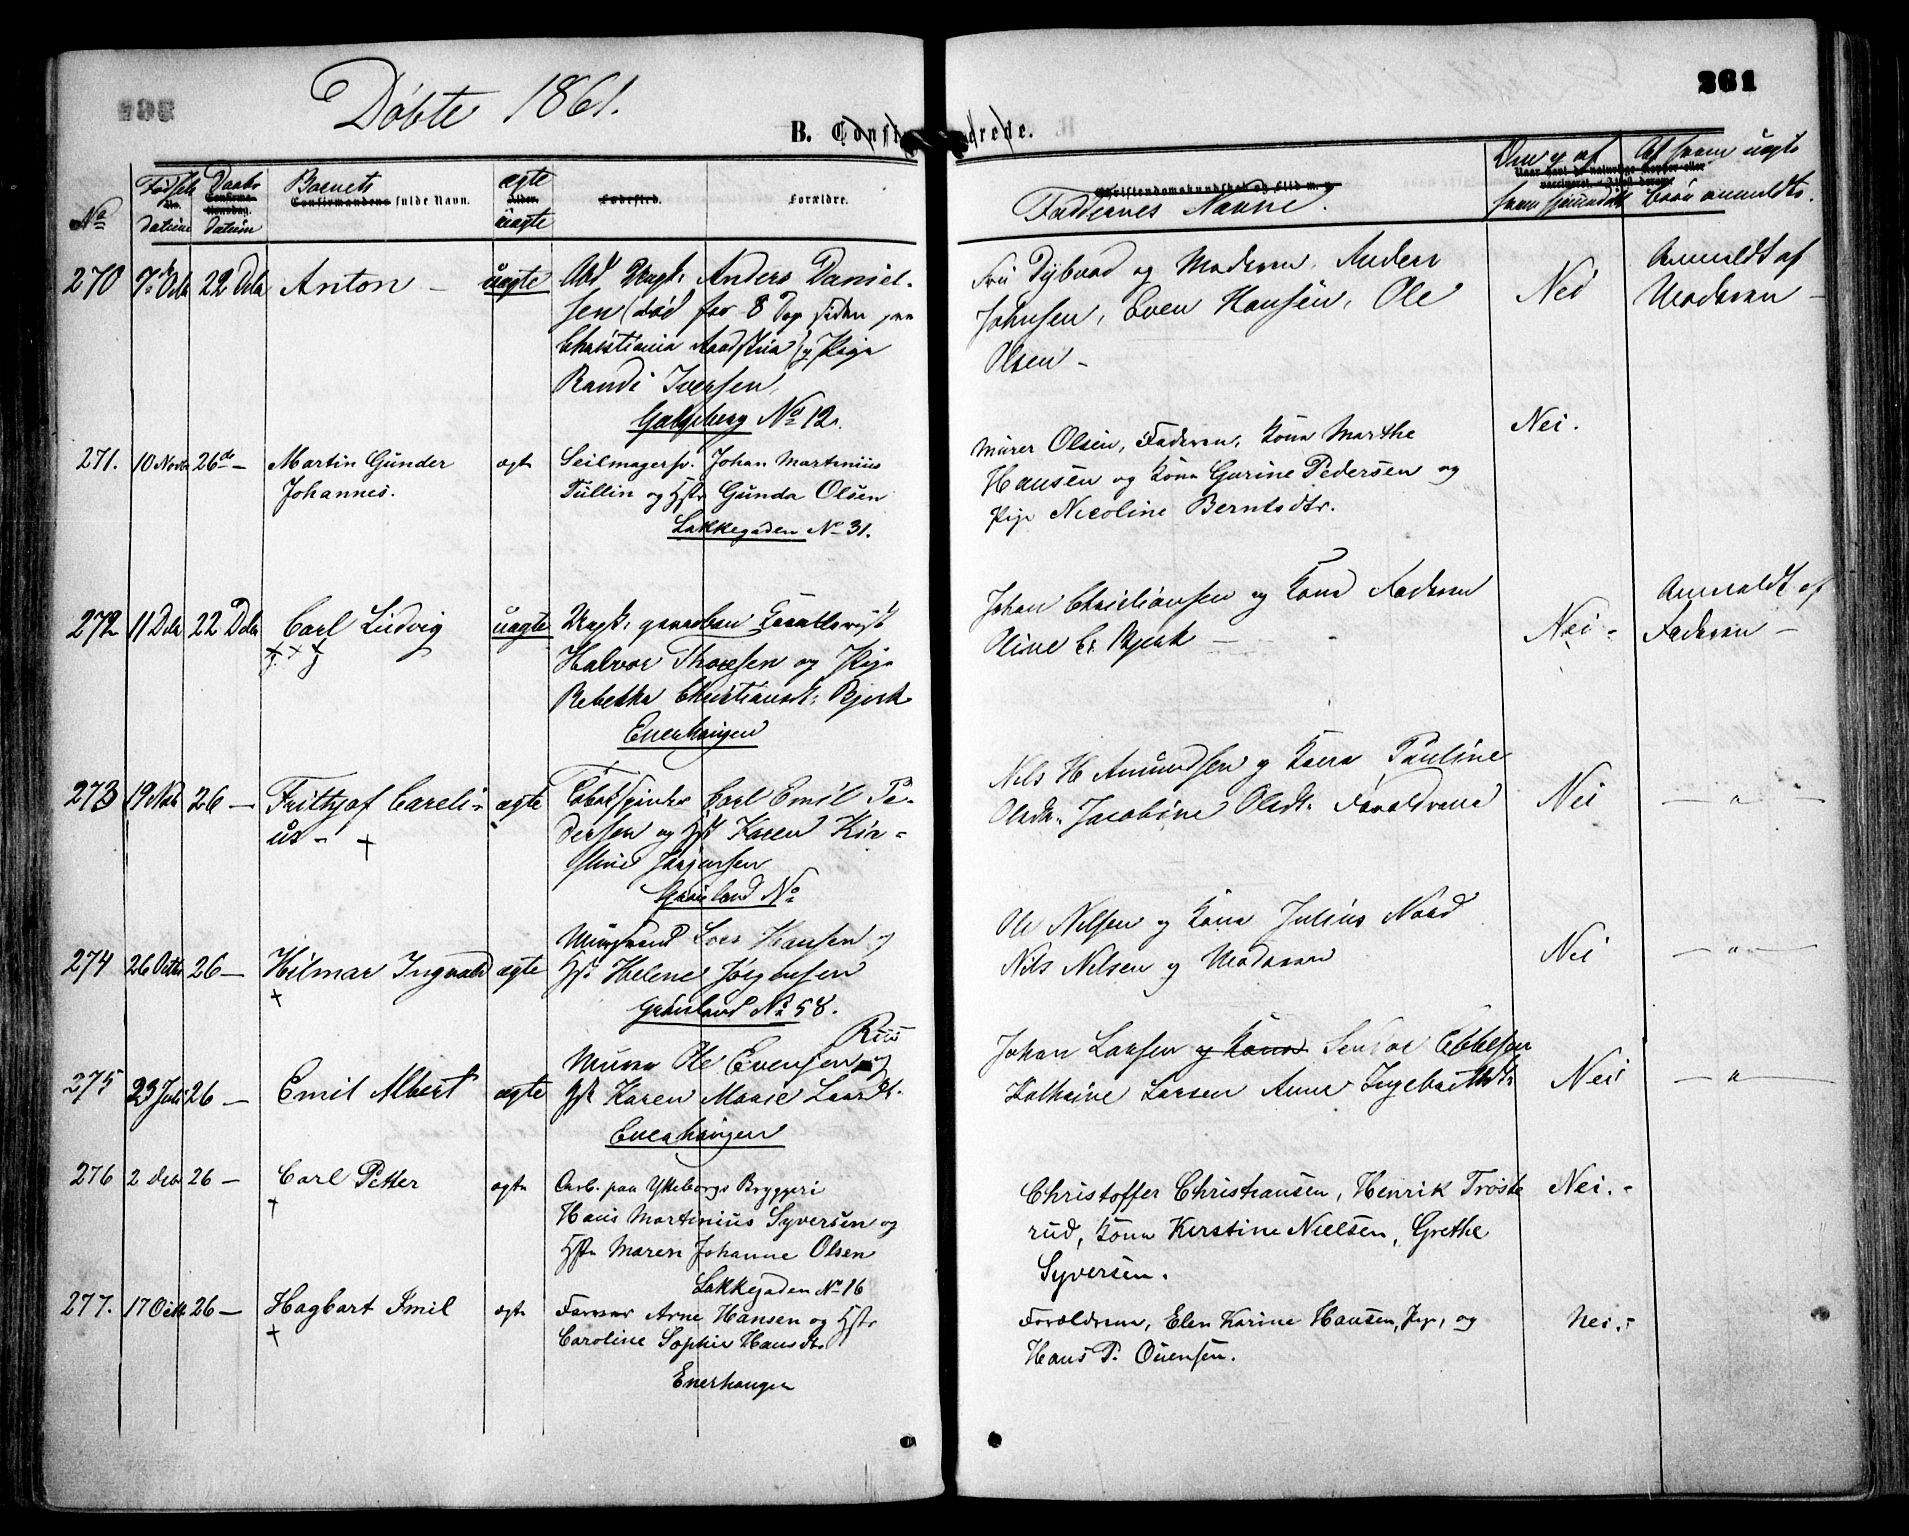 Døbte 1861.
261
B. Confirmerede.
No
Fødsels
Datum
Daabs
Datum
Barnets
Confirmandens fulde Navn.
ægte
Alder.
uægte
Fødested.
Forældre.
Christendomskundskab og Flid m. v.
Faddernes Navne.
270 7de Dcbr 22 Dcbr Anton — uægte
Anders Daniel-
sen (død for 8 Dage siden paa
Christiania ) og Pige
Randi Iversen
Galgeberg No 12.
Dybvad og Moderen, Anders
Johnsen, Even Hansen, Ole
Olsen —
Nei
Anmeldt af
Moderen —
271. 10 Novbr 26de — Martin Gunder
Johannes.
ægte
Seilmagersv. Johan Martinius
Tullin og Hstr Gunda Olsen
Lakkegaden No 31.
Murer Olsen, Faderen, Kona Marthe
Hansen og Kona Gurine Pedersen og
Pige Nicoline Berntsdtr.
Nei.
272 11 Dcbr 22 Dcbr Carl Ludvig uægte
Halvor Thoresen og Pige
Rebekka Christiansdt. Bjerk
Enerhaugen
Johan Christiansen og Kona Faderen
Oline C. Bjerk —
Nei —
Anmeldt af
Faderen —
273 19 Nvb 26 — Frithjof Careli-
us — +
ægte
Tobakspinder Carl Emil Pe-
dersen og Hst Karen Kir-
stine Jørgensen
Grønland No
Nils H Amundsen og Kona Pauline
Olsdt. Jacobine Olsdt. Forældrene
Nei
— " —
274 26 Octbr 26 — Hilmar Ingvald ægte
+
Hansen og
Hst Helene Jørgensen
Grønland No 58.
Ole Nilsen og Kona Julius Naad
Nils Nilsen og Moderen
Nei
— " —
275 23 Juli 26 — Emil Albert ægte
Riis
Murer Ole Evensen og
Hst Karen Marie Larsdt.
Enerhaugen
Johan Larsen og Kona Ebbesen
Kathrine Larsen Anne Ingebrethsdt.
Nei
— " —
276 2 Dcbr 26 — Carl Petter
+
ægte
Arb. paa Ytteborgs Bryggeri
Hans Martinius Syversen og
Hstr Maren Johanne Olsen
Lakkegaden No 16
Christoffer Christiansen, Henrik Trøste
rud, Kona Kirstine Nielsen, Grethe
Syversen.
Nei. —
277. 17 Octb 26 — Hagbart Imil
+
ægte
Farver Arne Hansen og Hstr
Caroline Sophie Hansdtr
Enerhaugen
Forældrene, Elen Karine Hansen, Pige, og
Hans P. Ouensen.
Nei. —